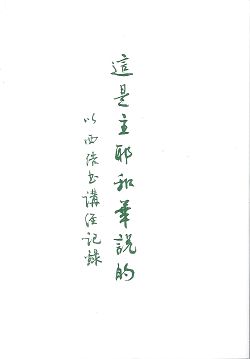 這是主耶和華說的
以西結書講經記錄